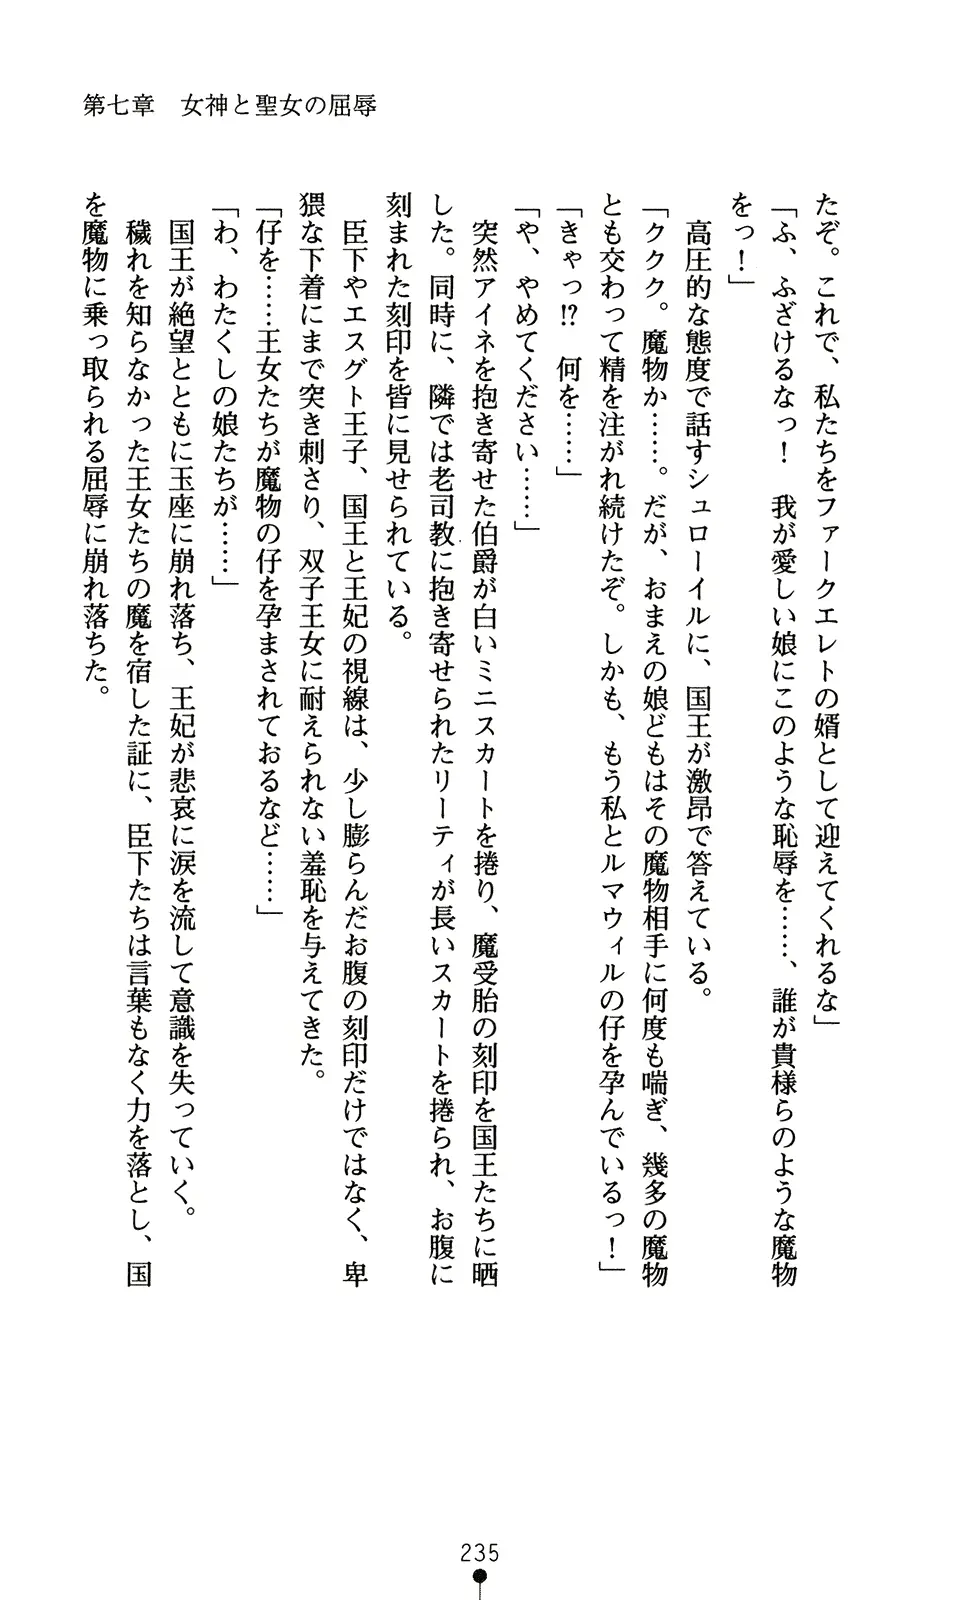 第七章　女神と聖女の屈辱
たぞ。これで、私たちをファークエレトの婿として迎えてくれるな」
「ふ、ふざけるなっ！　我が愛しい娘にこのような恥辱を……、誰が貴様らのような魔物
をっ！」
　高圧的な態度で話すシュローイルに、国王が激昂で答えている。
「ククク。魔物か……。だが、おまえの娘どもはその魔物相手に何度も喘ぎ、幾多の魔物
とも交わって精を注がれ続けたぞ。しかも、もう私とルマウィルの仔を孕んでいるっ！」
「きゃっ!?　何を……」
「や、やめてください……」
　突然アイネを抱き寄せた伯爵が白いミニスカートを捲り、魔受胎の刻印を国王たちに晒
した。同時に、隣では老司教に抱き寄せられたリーティが長いスカートを捲られ、お腹に
刻まれた刻印を皆に見せられている。
　臣下やエスグト王子、国王と王妃の視線は、少し膨らんだお腹の刻印だけではなく、卑
猥な下着にまで突き刺さり、双子王女に耐えられない羞恥を与えてきた。
「仔を……王女たちが魔物の仔を孕まされておるなど……」
「わ、わたくしの娘たちが……」
　国王が絶望とともに玉座に崩れ落ち、王妃が悲哀に涙を流して意識を失っていく。
　穢れを知らなかった王女たちの魔を宿した証に、臣下たちは言葉もなく力を落とし、国
を魔物に乗っ取られる屈辱に崩れ落ちた。
235